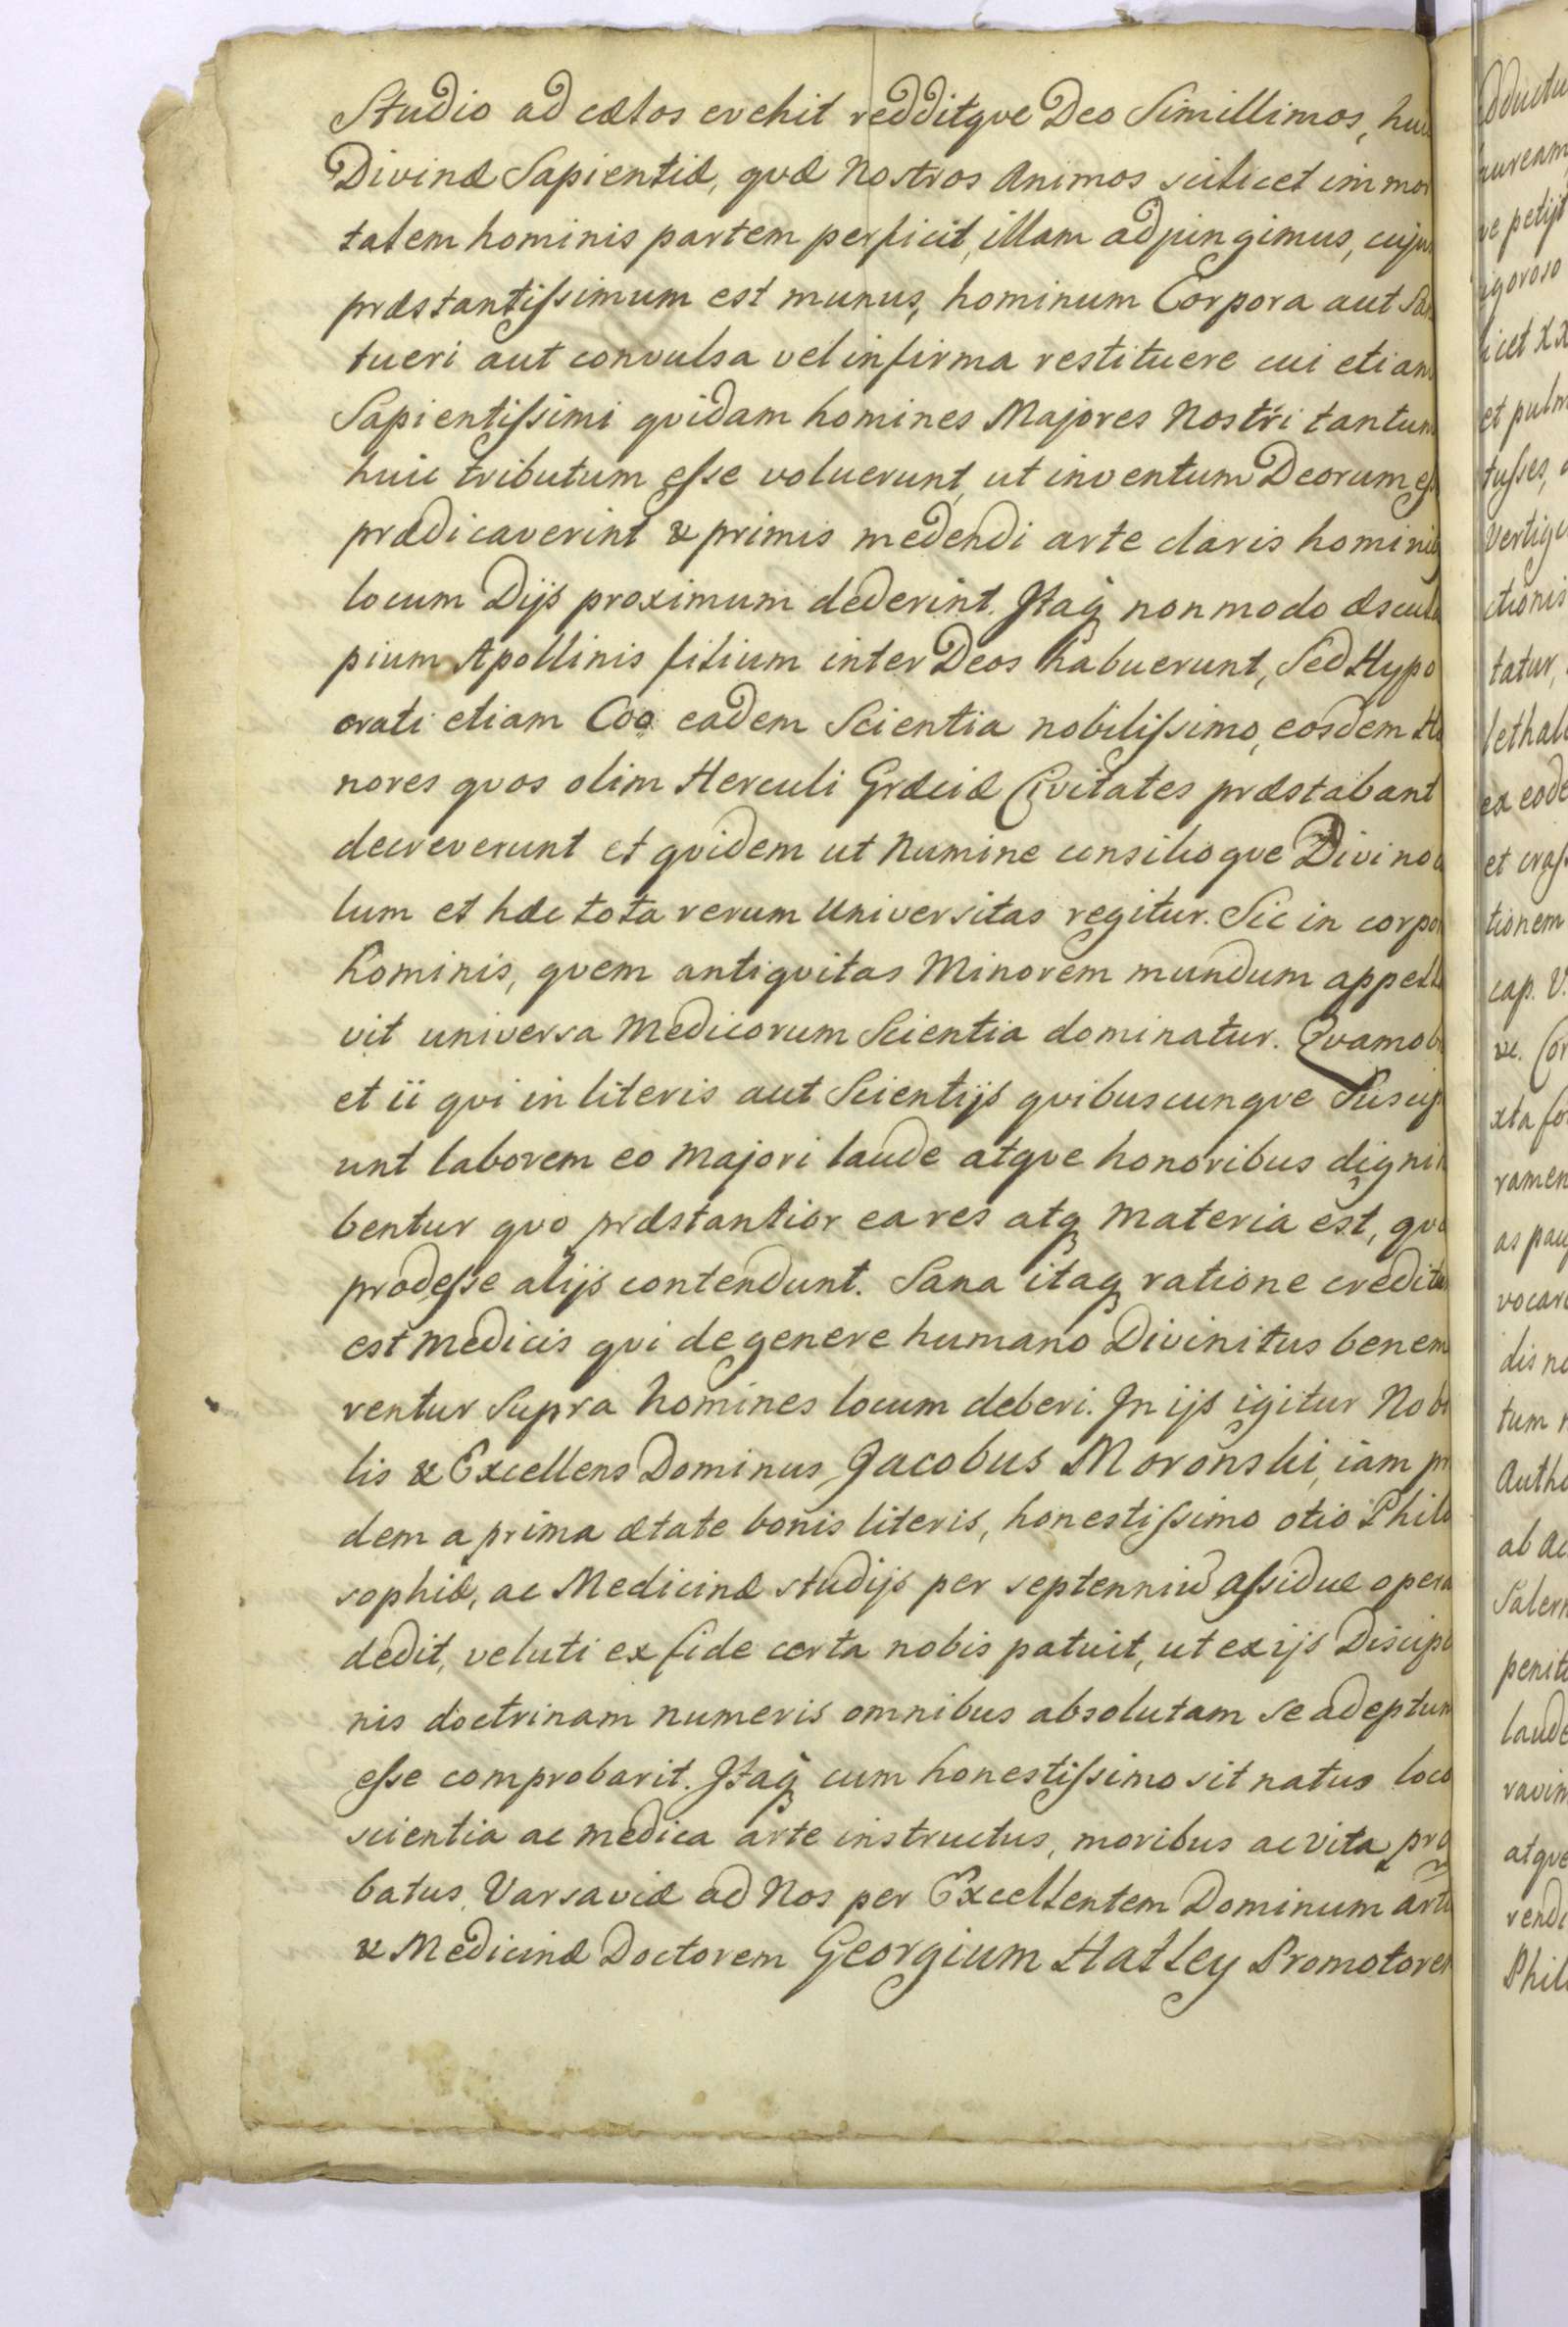 Studio ad cælos evehit redditqve Deo Simillimos, hui
Divinæ Sapientiæ, qvæ Nostros Animos scilicet immor
talem hominis partem perficit, illam adjungimus, cujus
præstantiſsimum est munus, hominum Corpora aut San
tueri aut convulsa vel infirma restituere cui etiam
Sapientiſsimi qvidam homines Majores Nostri tantum
huic tributum eſse voluerunt, ut inventum Deorum eſ
prædicaverint & primis medendi arte claris homini
locum Dijs proximum dederint. Itaq non modo æscula
pium Apollinis filium inter Deos habuerunt, Sed Hypo
crati etiam Coo eadem Scientia nobiliſsimo, eosdem Ho
nores qvos olim Herculi Græciæ Civitates præstabant
decreverunt et qvidem ut Numine consilioqve Divino
lum et hæc tota rerum Universitas regitur. Sic in corpor
hominis, qvem antiqvitas Minorem mundum appella
vit universa Medicorum Scientia dominatur. Qvamob
et ii qvi in literis aut Scientijs qvibuscunqve Suscip
unt laborem eo majori laude atqve honoribus digni
bentur qvo præstantior ea res atq Materia est, qva
prodeſse alijs contendunt. Sana itaq ratione creditu
est Medicis qvi de genere humano Divinitus benem
rentur Supra homines locum deberi. In ijs igitur Nobi
lis & Excellens Dominus Jacobus Moroński, iam pri
dem a prima ætate bonis literis, honestiſsimo otio Philo
sophiæ, ac Medicinæ studijs per septenniũ aſsiduæ opera
dedit, veluti ex fide certa nobis patuit, ut ex ijs Discipli
nis doctrinam numeris omnibus absolutam se adeptum
eſse comprobarit. Itaq cum honestiſsimo sit natus loco
scientia ac medica arte instructus, moribus ac vita pro
batus, Varsaviæ ad Nos per Excellentem Dominum Arti
& Medicinæ Doctorem Georgium Hatley Promotorem
dductu
auream
ve petijt
igoroso
licet XX
et pulm
tuſses,
Vertigi
ctionis
tatur,
lethal
ex eode
et craſs
tionem
cap. V.
ve. Cor
xta fo
ramen
as pau
vocar
dis no
tum
Autho
ab ac
Salern
penit
laude
ravim
atqve
rendi
Phil